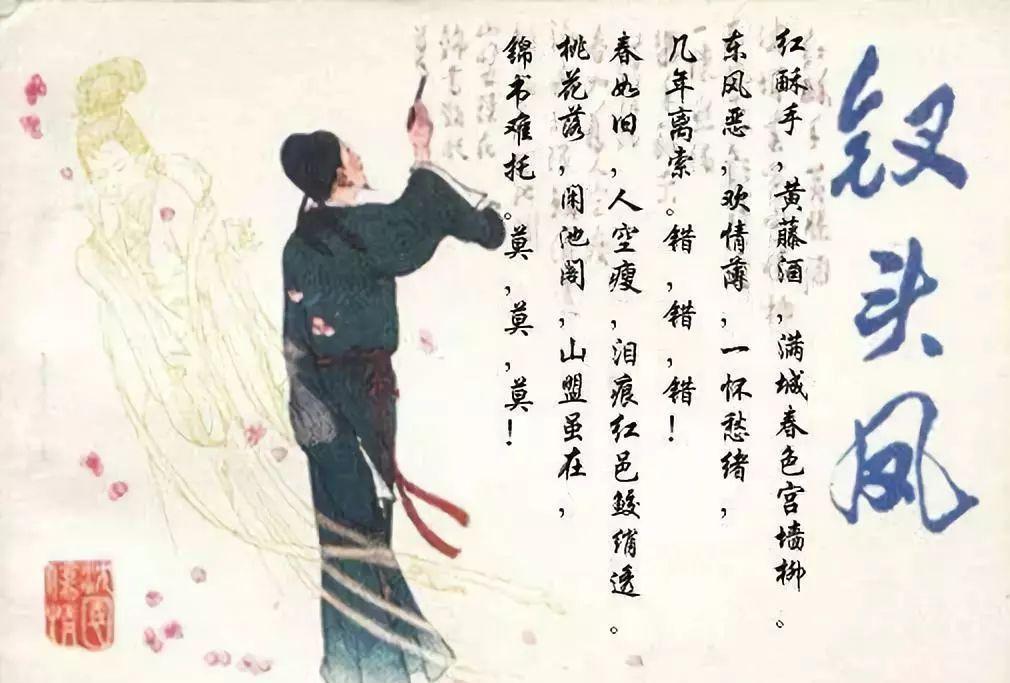 钗头凤
红酥手,黄藤酒,满城春色宫墙柳。
东风恶,欢情薄,一怀愁绪,
几年离索。错,错,错!
春如旧,人空瘦,泪痕红邑鲛绡透。
桃花落,闲池阁,山盟虽在,
锦书难托。莫,莫,莫!
沈园